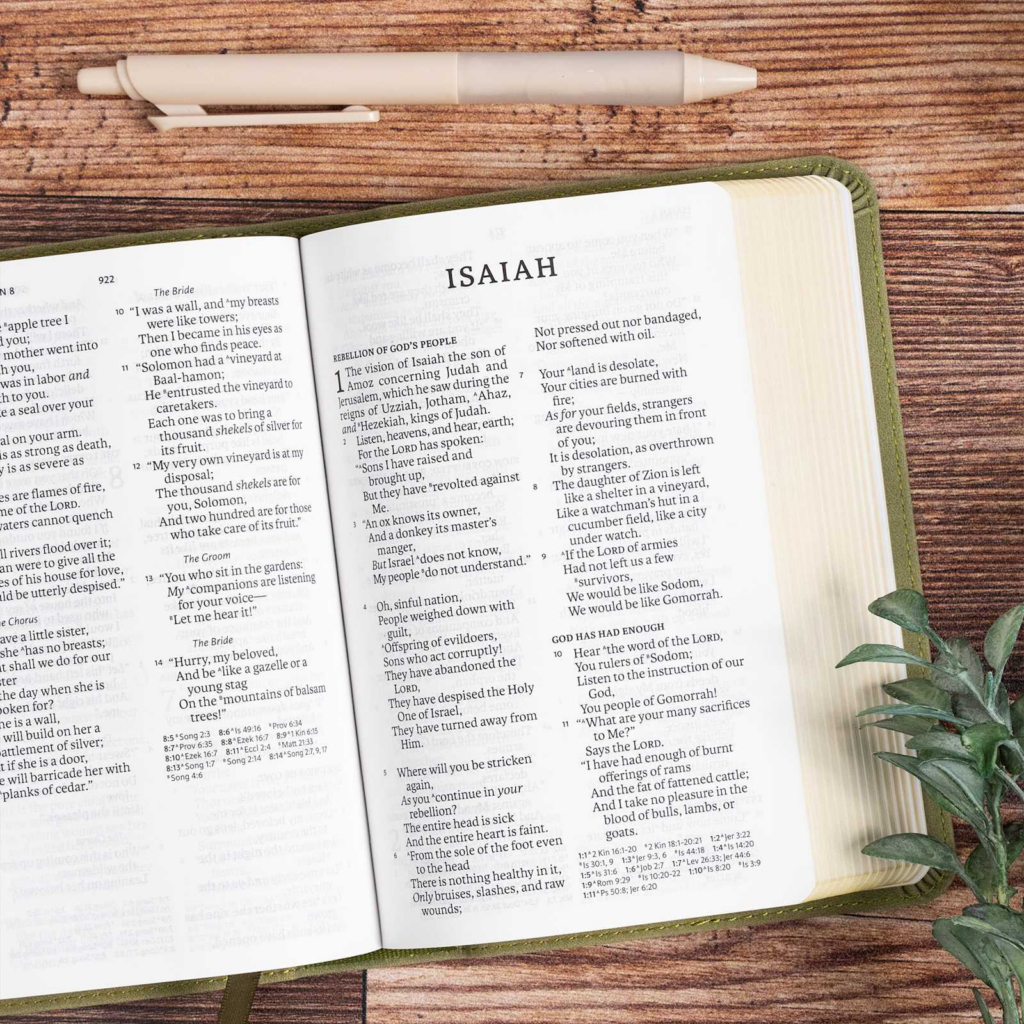 N 8
922
apple tree I
you;
mother went into
h you,
was in labor and
th to you.
e a seal over your
al on your arm.
is as strong as death,
y is as severe as
es are flames of fire,
me of the LORD.
waters cannot quench
ll rivers flood over it;
an were to give all the
es of his house for love,
uld be utterly despised.”
he Chorus
ave a little sister,
she ᴬhas no breasts;
t shall we do for our
ster
the day when she is
poken for?
he is a wall,
will build on her a
battlement of silver;
t if she is a door,
e will barricade her with
planks of cedar.”
The Bride
10 “I was a wall, and ᴬmy breasts
were like towers;
Then I became in his eyes as
one who finds peace.
11 “Solomon had a ᴬvineyard at
Baal-hamon;
He ᴮentrusted the vineyard to
caretakers.
Each one was to bring a
thousand shekels of silver for
its fruit.
12 “My very own vineyard is at my
disposal;
The thousand shekels are for
you, Solomon,
And two hundred are for those
who take care of its fruit.”
The Groom
13 “You who sit in the gardens:
My ᴬcompanions are listening
for your voice—
ᴮLet me hear it!”
The Bride
14 “Hurry, my beloved,
And be ᴬlike a gazelle or a
young stag
On the ᴮmountains of balsam
trees!”
8:5ᴬSong 2:3 8:6ᴬIs 49:16 ᴮProv 6:34
8:7ᴬProv 6:35 8:8ᴬEzek 16:7 8:9ᴬ1 Kin 6:15
8:10ᴬEzek 16:7 8:11ᴬEccl 2:4 ᴮMatt 21:33
8:13ᴬSong 1:7 ᴮSong 2:14 8:14ᴬSong 2:7, 9, 17
ᴮSong 4:6
ISAIAH
REBELLION OF GOD’S PEOPLE
1 The vision of Isaiah the son of
Amoz concerning Judah and
Jerusalem, which he saw during the
reigns of Uzziah, Jotham, ᴬAhaz,
and ᴮHezekiah, kings of Judah.
2 Listen, heavens, and hear, earth;
For the LORD has spoken:
“ᴬSons I have raised and
brought up,
But they have ᴮrevolted against
Me.
3 “An ox knows its owner,
And a donkey its master’s
manger,
But Israel ᴬdoes not know,
My people ᴮdo not understand.”
4 Oh, sinful nation,
People weighed down with
guilt,
ᴬOffspring of evildoers,
Sons who act corruptly!
They have abandoned the
LORD,
They have despised the Holy
One of Israel,
They have turned away from
Him.
5 Where will you be stricken
again,
As you ᴬcontinue in your
rebellion?
The entire head is sick
And the entire heart is faint.
6 ᴬFrom the sole of the foot even
to the head
There is nothing healthy in it,
Only bruises, slashes, and raw
wounds;
Not pressed out nor bandaged,
Nor softened with oil.
7 Your ᴬland is desolate,
Your cities are burned with
fire;
As for your fields, strangers
are devouring them in front
of you;
It is desolation, as overthrown
by strangers.
8 The daughter of Zion is left
like a shelter in a vineyard,
Like a watchman’s hut in a
cucumber field, like a city
under watch.
9 ᴬIf the LORD of armies
Had not left us a few
ᴮsurvivors,
We would be like Sodom,
We would be like Gomorrah.
GOD HAS HAD ENOUGH
10 Hear ᴬthe word of the LORD,
You rulers of ᴮSodom;
Listen to the instruction of our
God,
You people of Gomorrah!
11 “ᴬWhat are your many sacrifices
to Me?”
Says the LORD.
“I have had enough of burnt
offerings of rams
And the fat of fattened cattle;
And I take no pleasure in the
blood of bulls, lambs, or
goats.
1:1ᴬ2 Kin 16:1-20 ᴮ2 Kin 18:1-20:21 1:2ᴬJer 3:22
ᴮIs 30:1, 9 1:3ᴬJer 9:3, 6 ᴮIs 44:18 1:4ᴬIs 14:20
1:5ᴬIs 31:6 1:6ᴬJob 2:7 1:7ᴬLev 26:33; Jer 44:6
1:9ᴬRom 9:29 ᴮIs 10:20-22 1:10ᴬIs 8:20 ᴮIs 3:9
1:11ᴬPs 50:8; Jer 6:20